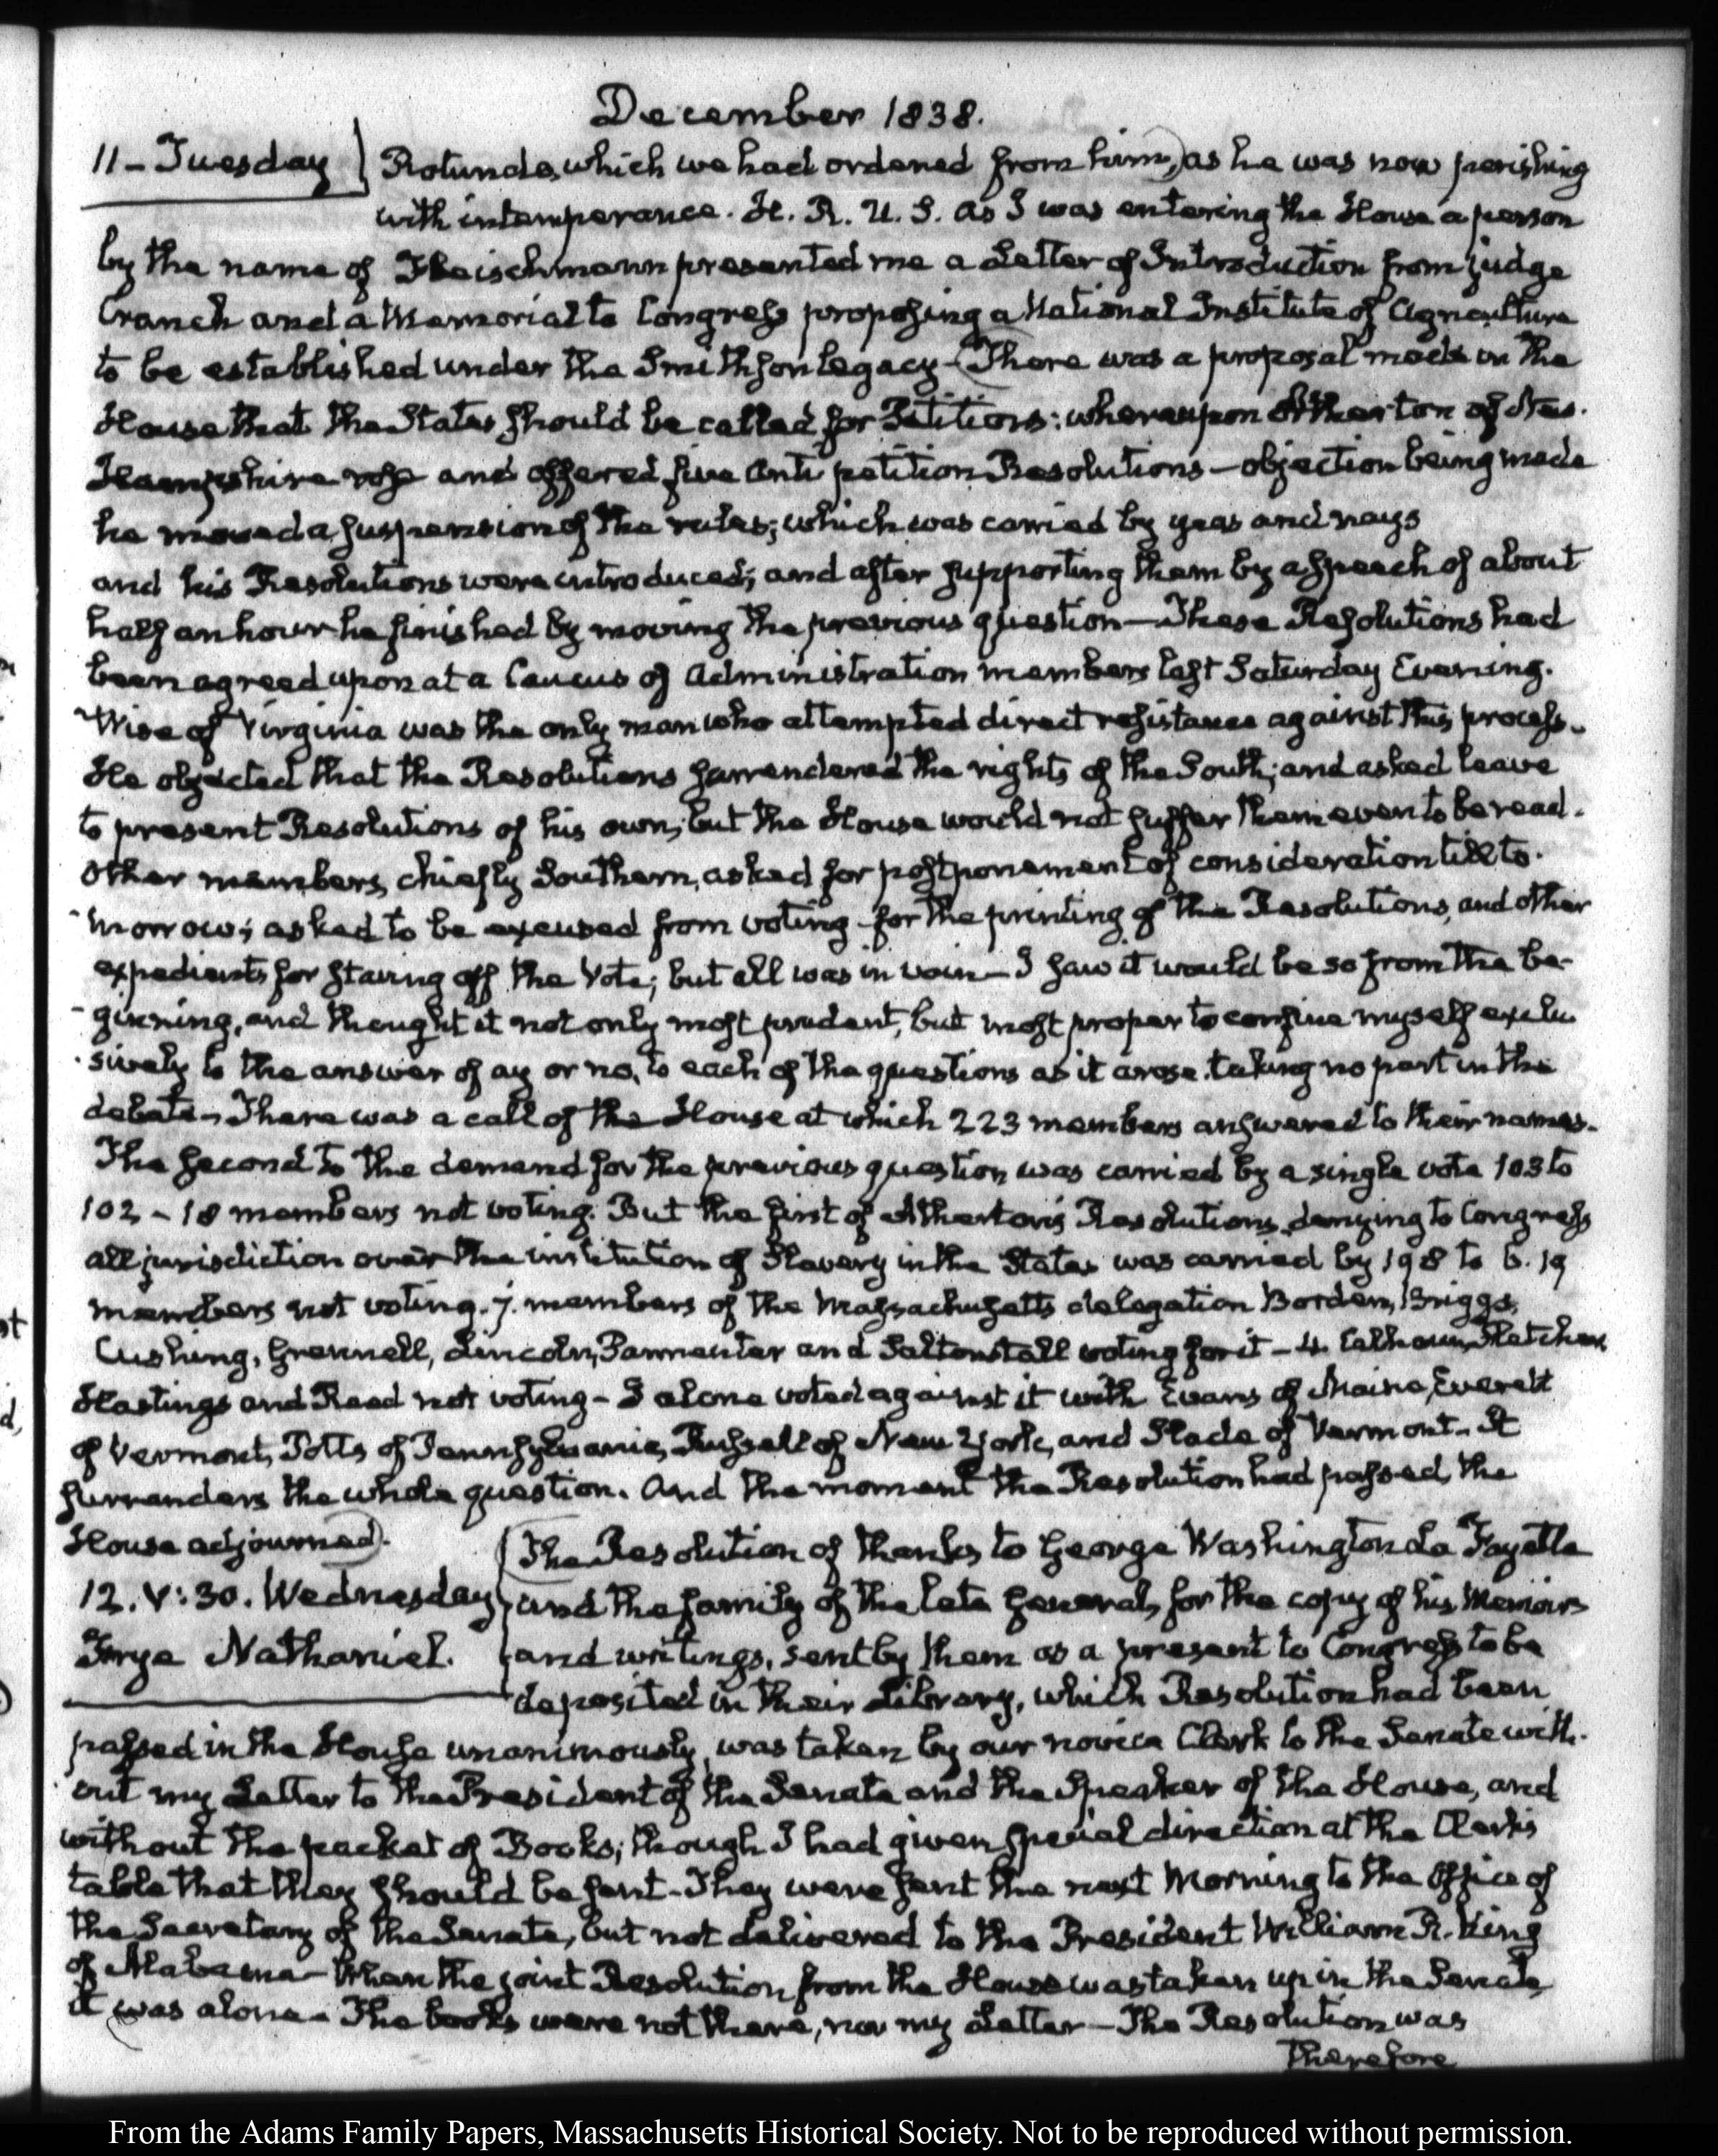 December 1838.
11 - Tuesday
Rotunda, which we had ordered from him, as he was now perishing
with intemperance. H. R. U. S. as I was entering the House a person
by the name of Fleischmann presented me a Letter of Introduction from judge
Cranch and a Memorial to Congress proposing a National Institute of Agriculture
to be established under the Smithson legacy - There was a proposal made in the
House that the States should be called for Petitions: whereupon Atherton of New.
Hampshire rose and offered five anti petition Resolutions - objection being made
he moved a suspension of the rules; which was carried by yeas and nays
and his Resolutions were introduced; and after supporting them by a speech of about
half an hour he finished by moving the previous question - These Resolutions had
been agreed upon at a Caucus of Administration members last Saturday Evening.
Wise of Virginia was the only man who attempted direct resistance against this process.
He objected that the Resolutions surrendered the rights of the South; and asked leave
to present Resolutions of his own; but the House would not suffer them even to be read.
Other members, chiefly Southern, asked for postponement of consideration till to-
morrow; asked to be excused from voting - for the printing of the Resolutions, and other
expedients for staving off the Vote; but all was in vain - I saw it would be so from the be-
-ginning, and thought it not only most prudent, but most proper to confine myself exclu
-sively to the answer of ay or no, to each of the questions as it arose, taking no part in the
debate - There was a call of the House at which 223 members answered to their names.
The second to the demand for the previous question was carried by a single vote 103 to
102 - 18 members not voting. But the first of Atherton's Resolutions denying to Congress
all jurisdiction over the institution of Slavery in the States was carried by 198 to 6. 19
members not voting. 7. members of the Massachusetts delegation Borden, Briggs,
Cushing, Grennell, Lincoln, Parmenter and Saltonstall voting for it - 4. Calhoun, Fletcher
Hastings and Reed not voting - I alone voted against it with Evans of Maine, Everett
of Vermont, Potts of Pennsylvania, Russell of New York, and Slade of Vermont - It
surrenders the whole question. And the moment the Resolution had passed, the
House adjourned.
12. V: 30. Wednesday
Frye Nathaniel.
The Resolution of thanks to George Washington La Fayette
and the family of the late General, for the copy of his Memoirs
and writings, sent by them as a present to Congress to be
deposited in their Library, which Resolution had been
passed in the House unanimously, was taken by our novice Clerk to the Senate with-
out my Letter to the President of the Senate and the Speaker of the House, and
without the packet of Books; though I had given special direction at the Clerk's
table that they should be sent - They were sent the next Morning to the Office of
the Secretary of the Senate, but not delivered to the President William R. King
of Alabama - When the joint Resolution from the House was taken up in the Senate,
it was alone - The books were not there, nor my Letter - The Resolution was
therefore
From the Adams Family Papers, Massachusetts Historical Society. Not to be reproduced without permission.